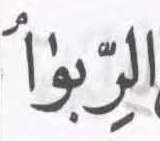 الرِّبوٰاُ